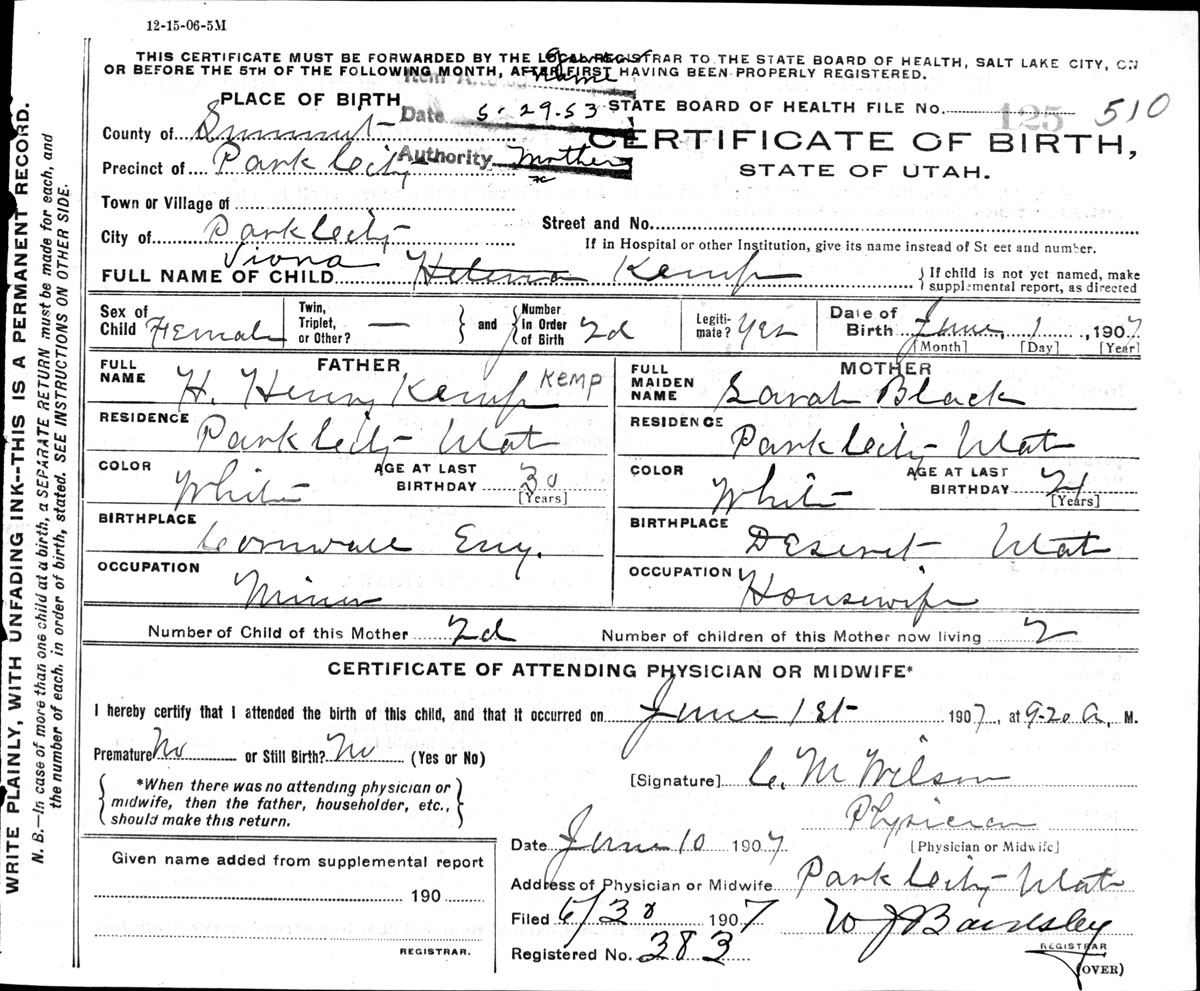 12-15-06-5M
THIS CERTIFICATE MUST BE FORWARDED BY THE LOCAL REGISTRAR TO THE STATE BOARD OF HEALTH, SALT LAKE CITY, ON
OR BEFORE THE 5TH OF THE FOLLOWING MONTH, AFTER FIRST HAVING BEEN PROPERLY REGISTERED.
Name
PLACE OF BIRTH
Date 5-29-53
STATE BOARD OF HEALTH FILE No. 125 510
County of Summit
CERTIFICATE OF BIRTH,
Precinct of Park City
Authority Mother
STATE OF UTAH.
Town or Village of
Street and No.
City of Park City
If in Hospital or other Institution, give its name instead of St eet and number.
Viona
FULL NAME OF CHILD Helena Kemp
If child is not yet named, make
supplemental report, as directed
Sex of Child Female
Twin, Triplet, or Other? —
and
Number In Order of Birth 2d
Legiti-mate? Yes
Date of Birth June, 1, 1907
[Month] [Day] [Year]
FATHER
FULL NAME H. Henry Kemp KEMP
RESIDENCE Park City Utah
COLOR White
AGE AT LAST BIRTHDAY 30
[Years]
BIRTHPLACE Cornwall Eng.
OCCUPATION Miner
MOTHER
FULL MAIDEN NAME Sarah Black
RESIDENCE Park City Utah
COLOR White
AGE AT LAST BIRTHDAY 21
[Years]
BIRTHPLACE Deseret Utah
OCCUPATION Housewife
Number of Child of this Mother 2d
Number of children of this Mother now living 2
CERTIFICATE OF ATTENDING PHYSICIAN OR MIDWIFE*
I hereby certify that I attended the birth of this child, and that it occurred on June 1st 1907, at 9-20 A, M.
Premature No or Still Birth? No (Yes or No)
[Signature] C. M Wilson
*When there was no attending physician or
midwife, then the father, householder, etc.,
should make this return.
Physician
[Physician or Midwife]
Date June 10 1907
Given name added from supplemental report
190
REGISTRAR.
Address of Physician or Midwife Park City Utah
Filed 6/30 1907
W J Bardsley
REGISTRAR
Registered No. 383
(OVER)
WRITE PLAINLY, WITH UNFADING INK--THIS IS A PERMANENT RECORD.
N. B.—In case of more than one child at a birth, a SEPARATE RETURN must be made for each, and
the number of each. in order of birth, stated. SEE INSTRUCTIONS ON OTHER SIDE.